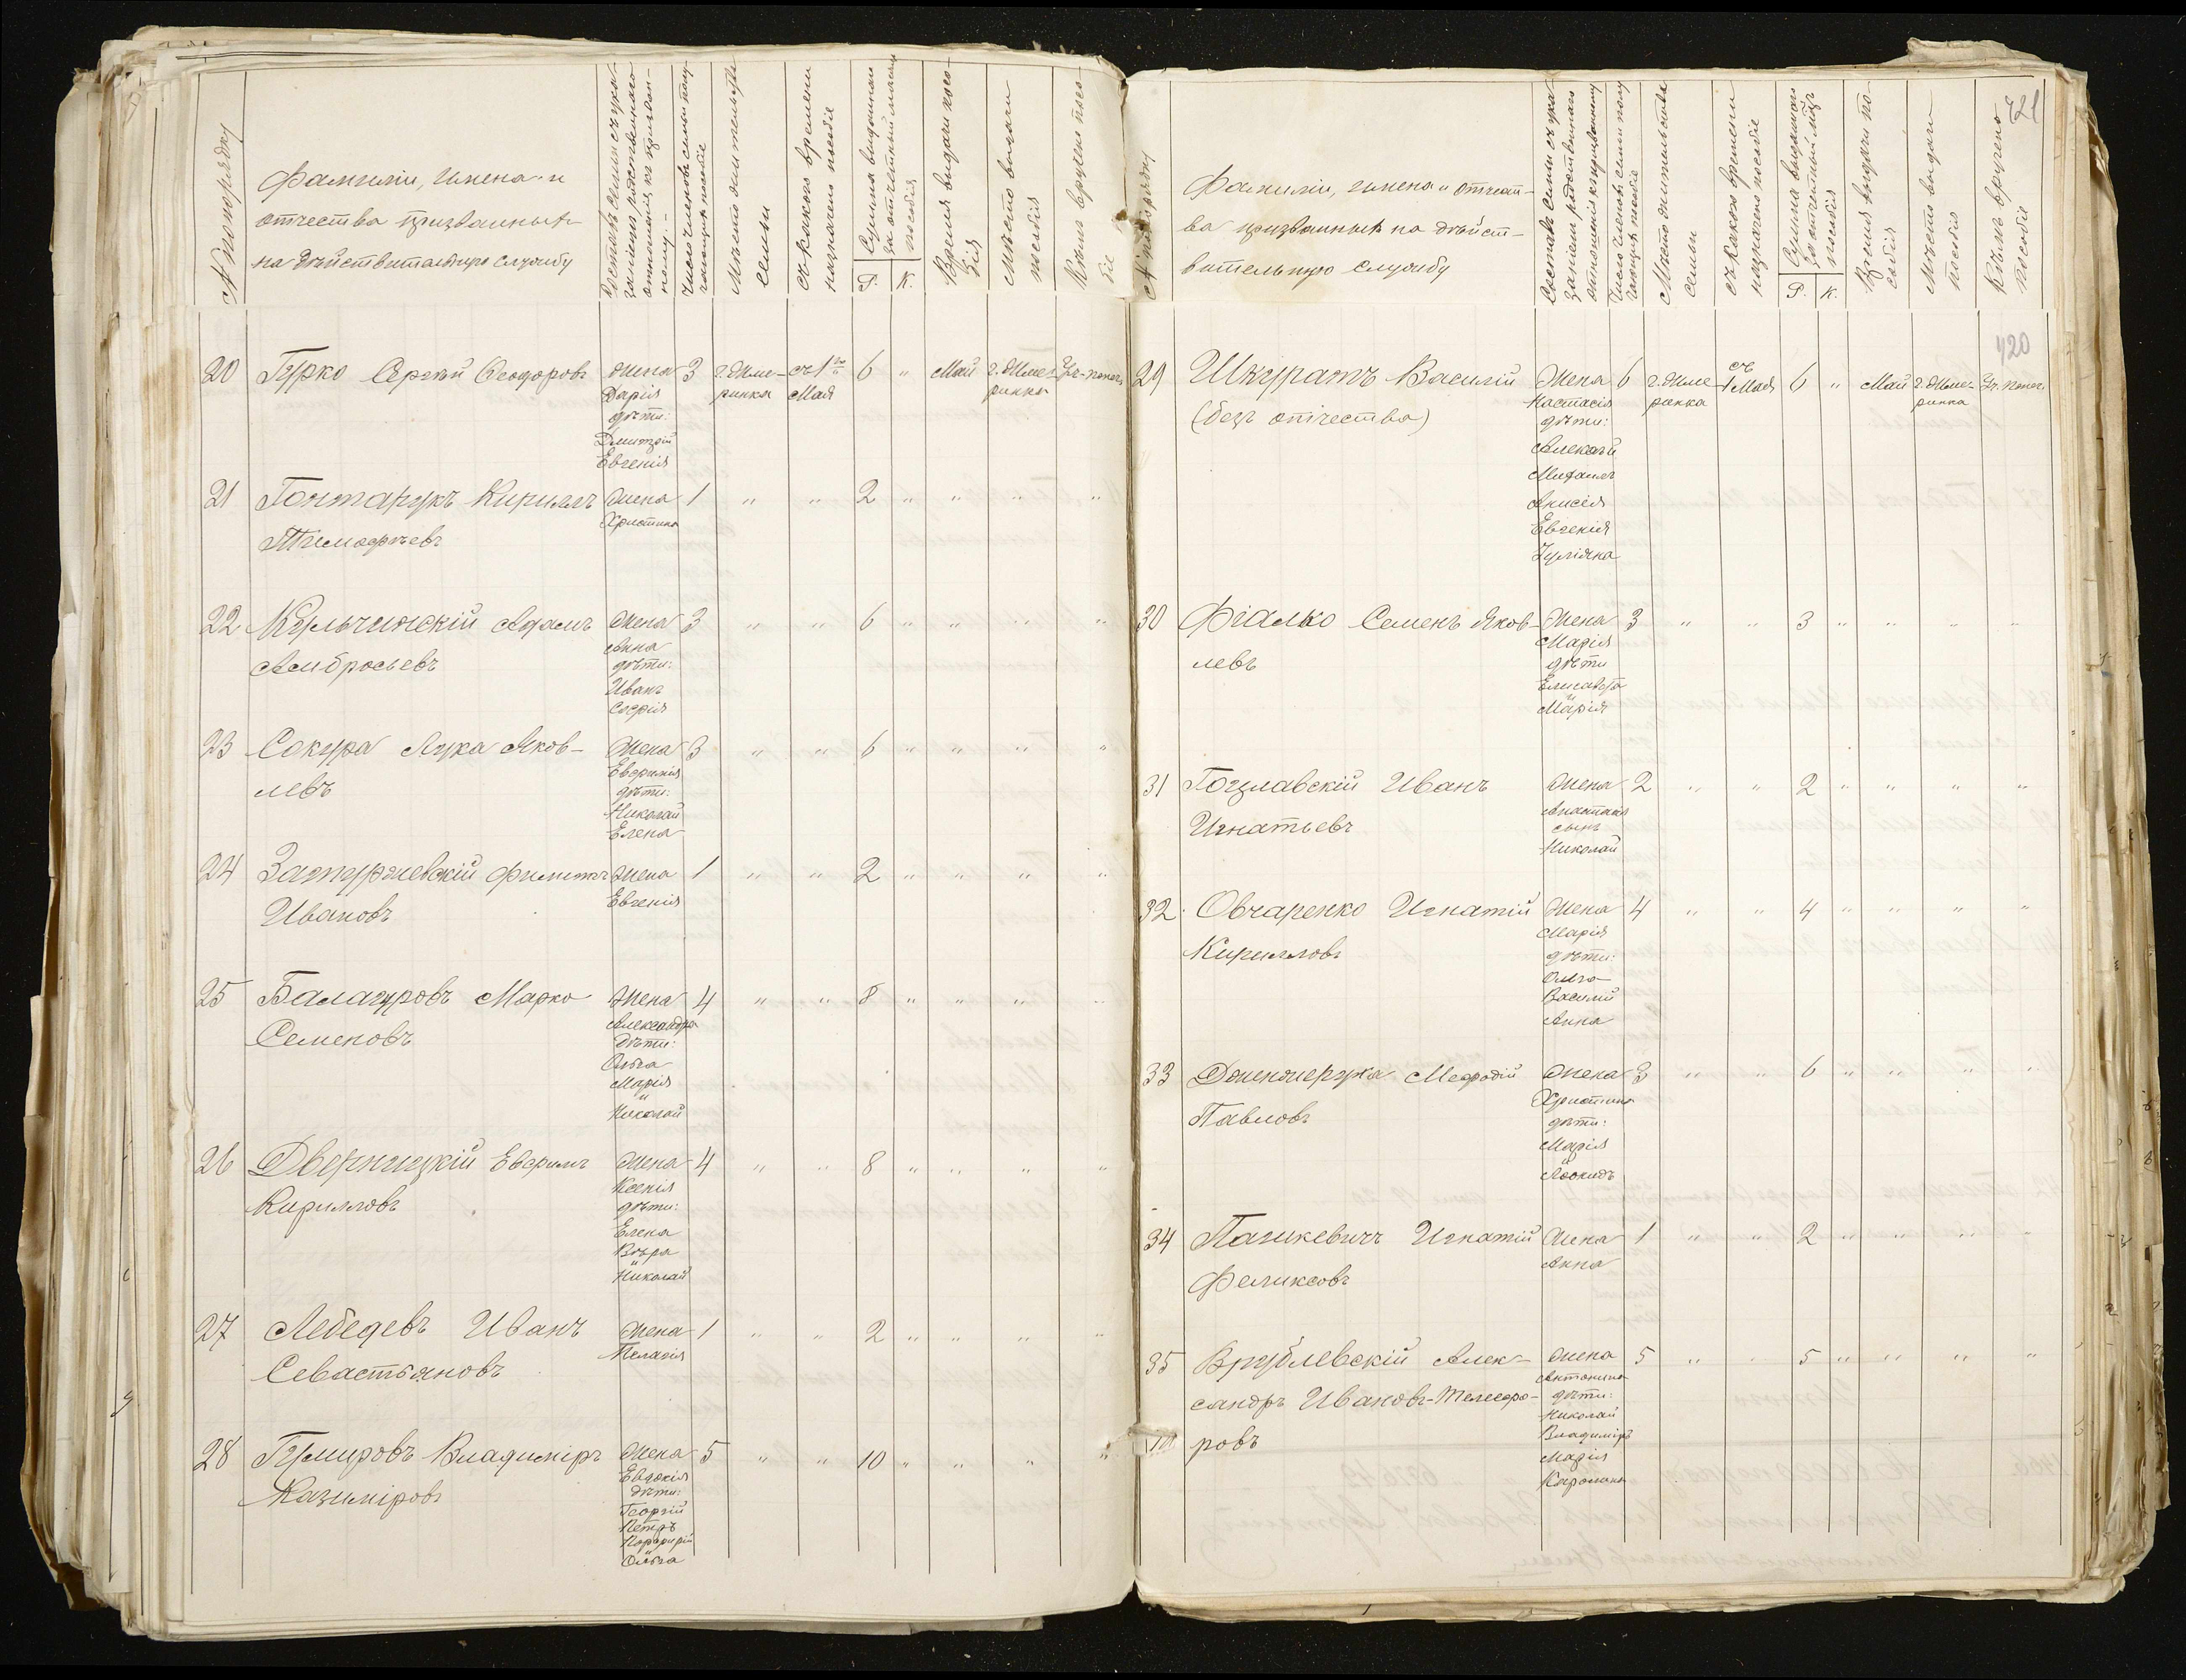 № по порядку
Фамиліи, имена и
отчества призванныхъ
на дѣйствительную службу
Составъ семьи съ ука-
заніемъ родственнаго
отношенія къ призван-
ному.
Число членовъ семьи полу-
чающихъ пособіе
Мѣсто жительства
семьи
съ какого времени
назначено пособіе
Сумма выданнаго
за отчетный мѣсяцъ
пособія
Р. К.
Время выдачи посо-
бія
Мѣсто выдачи
пособія
Кѣмъ вручено посо-
біе
20 Гурко Сергѣй Ѳеодоровъ жена 3 г. Жме- съ 1го 6 " Май г. Жме-
Дарія ринка Мая ринка
дѣти:
Дмитрій
Евгенія
21 Гонтарукъ Кириллъ жена 1 " " 2 " " " "
Христина
Тимофѣевъ
22 Кульчинскій Адамъ жена 3 " " 6 " " " "
Анна
Амбросьевъ дѣти:
Иванъ
Софія
23 Сокура Лука Яков- жена 3 " " 6 " " " "
Евфимія
левъ дѣти:
Николай
Елена
24 Филиппъ жена 1 " " 2 " " " "
Евгенія
Ивановъ
25 Балагуровъ Марко жена 4 " " 8 " " " "
Александра
Семеновъ дѣти:
Ольга
Марія
и
Николай
26 Дверницкій Ефимъ жена 4 " " 8 " " " "
Ксенія
Кирилловъ дѣти:
Елена
Вѣра
и
Николай
27 Лебедевъ Иванъ жена 1 " " 2 " " " "
Пелагія
Севастьяновъ
28 Гумировъ Владиміръ жена 5 " " 10 " " " "
Евдокія
Казиміровъ дѣти:
Георгій
Петръ
Порфирій
и
Ольга
421
420
№ по порядку
Фамиліи, имена и отчест-
ва призванныхъ на дѣйст-
вительную службу
Составъ семьи съ ука-
заніемъ родственнаго
отношенія къ призванному
Число членовъ семьи полу-
чающихъ пособіе
Мѣсто жительства
семьи
съ какого времени
назначено пособіе
Сумма выданнаго
за отчетный мѣсяцъ
пособія
Р. К.
Время выдачи по-
собія
Мѣсто выдачи
пособія
Кѣмъ вручено
пособіе
29 Шкуратъ Василій жена 6 г. Жме- съ 1 Мая 6 " Май г. Жме-
Настасія ринка ринка
(безъ отчества) дѣти:
Алексѣй
Михаилъ
Анисія
Евгенія
Іуліана
30 Фіалко Семенъ Яков- жена 3 " " 3 " " " "
Марія
левъ дѣти
Елисавета
и
Марія
31 Иванъ жена 2 " " 2 " " " "
Анастасія
Игнатьевъ сынъ
Николай
32 Овчаренко Игнатій жена 4 " " 4 " " " "
Марія
Кирилловъ дѣти:
Ольга
Василій
Анна
33 Меѳодій жена 3 " " 6 " " " "
Христина
Павловъ дѣти:
Марія
и
Леонидъ
34 Пашкевичъ Игнатій жена 1 " " 2 " " " "
Анна
Феликсовъ
35 Врублевскій Алек- жена 5 " " 5 " " " "
Антонина
сандръ Ивановъ-Телесфо- дѣти:
Николай
ровъ Владиміръ
Марія
Каролина